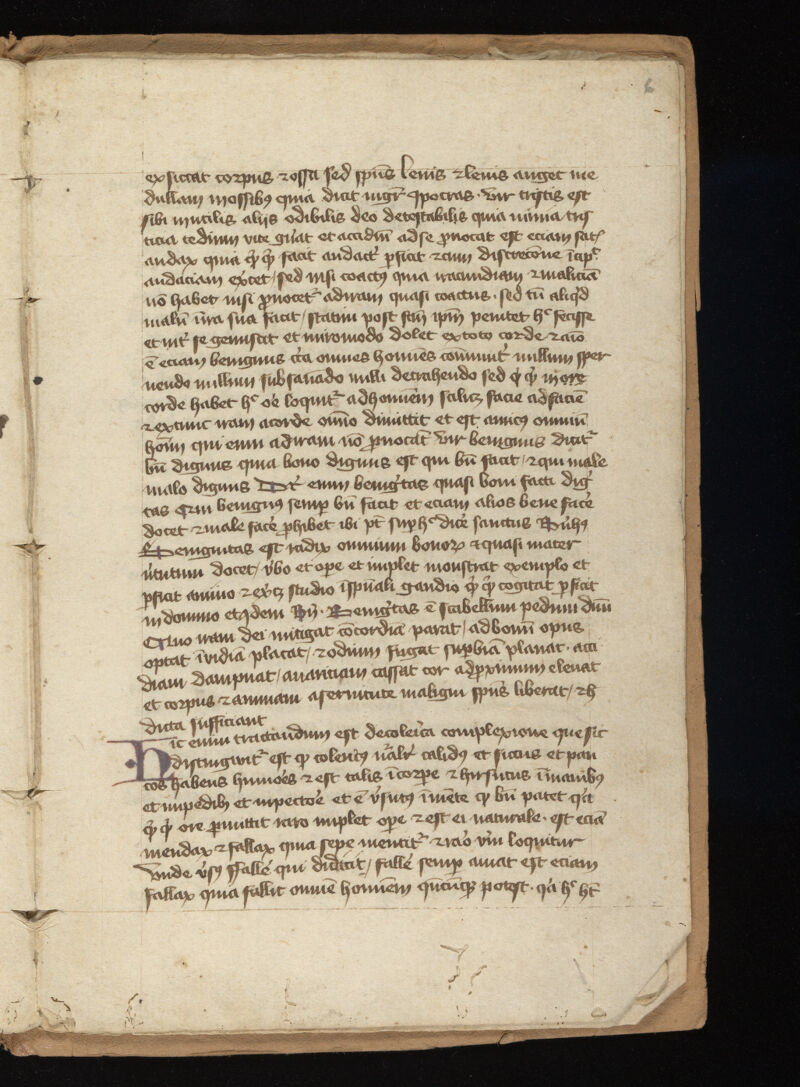 6
exsiccat corpus ⁊ ossa sed sp̄us lenis ⁊ leuis auget me
dullam in ossibꝯ quia dicit mgr̄ ypocras · vir tristis est
sibi inutilis aliis odibilis deo detestabilis quia nimia tris
ticia tedium vite gn̄at et accidiā ad se ꝓuocat est eciam
audax quia facit audact̄ ꝑficit ⁊ cum discrecōne
audaciam exc̄et / sed nisi coactꝯ quia iracundiam ⁊ maliciā
nō habet nisi ꝓuocet᷑ ad iram quasi coactus · sed tn̄ aliqͥd
malū in ira sua facit / statim post penitet h᷒ fecisse
et int᷑ se gemiscit et miro modo dolet ex toto corde ⁊ aīo
ē eciam benignus cͥca omnes homines nullum sper
nendo nullum subsanādo nulli detrahendo sed more
corde habet h᷒ ore loquit᷑ ad hominem facie ad faciē
⁊ iram a corde om̄io dimittit et est amicꝯ omniū
hom̄ qui enim ad iram nō ꝓuocat vir benignus dicit᷑
bn̄ dignus quia bono dignus est qui bn̄ facit / ⁊ qui male
malo dignus enim benigͥtas quasi boni facti dig
tas benignꝯ semꝑ bn̄ facit et eciam alios bene facē
docet ⁊ male facē ꝓhibet ibi pt̄ sup h᷒ dicē sanctus
Benignitas est radix omnium bonoꝝ ⁊ quasi mater
v̄tutum docet / v̄bo et oꝑe et implet monstrat exemplo et
ꝑficit animo ⁊ studio gaudio cogitat ꝑficit
in domino et idem Benigͥtas ē scabellum pedum dn̄i
iram dei mitigat cōcordiā parat / ad bonū opus
optat īuidiā placat / ⁊ odium fugat suꝑbiā planat · acci
diam dampnat / auariciam cassat cor ad ꝓximum eleuat
et corpus ⁊ animam a seruitute maligni sp̄us liberat / ⁊ h᷒
dicta sufficiant
Hic enim tractandum est de colerͥca complexione que sic
distingwit᷑ est colericꝯ nāl᷑r calidꝯ et siccus et pau
cos habens humōes ⁊ est talis ī corꝑe ⁊ hirsutus ī manibꝯ
et in pedibꝯ et in pectoꝛe et ē v̄sutꝯ ī mēte bn̄ patet qͥa
ore ꝓmittit raro implet oꝑe ⁊ est ei naturale · est eciā
mendax ⁊ fallax quia sepe mentit᷑ ⁊ raͦo loquitur
vnde v̄sꝯ ffallē qui didicit / fallē semꝑ amat est eciam
fallax quia fallit omnē hominēm potest · qͥa h᷒ ht̄